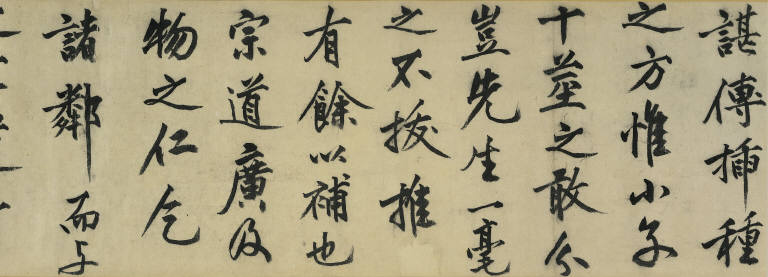 諶傳插種
之方惟小子
十莖之敢分
豈先生一毫
之不拔推
有餘以補也
宗道廣及
物之仁乞
諸鄰而与